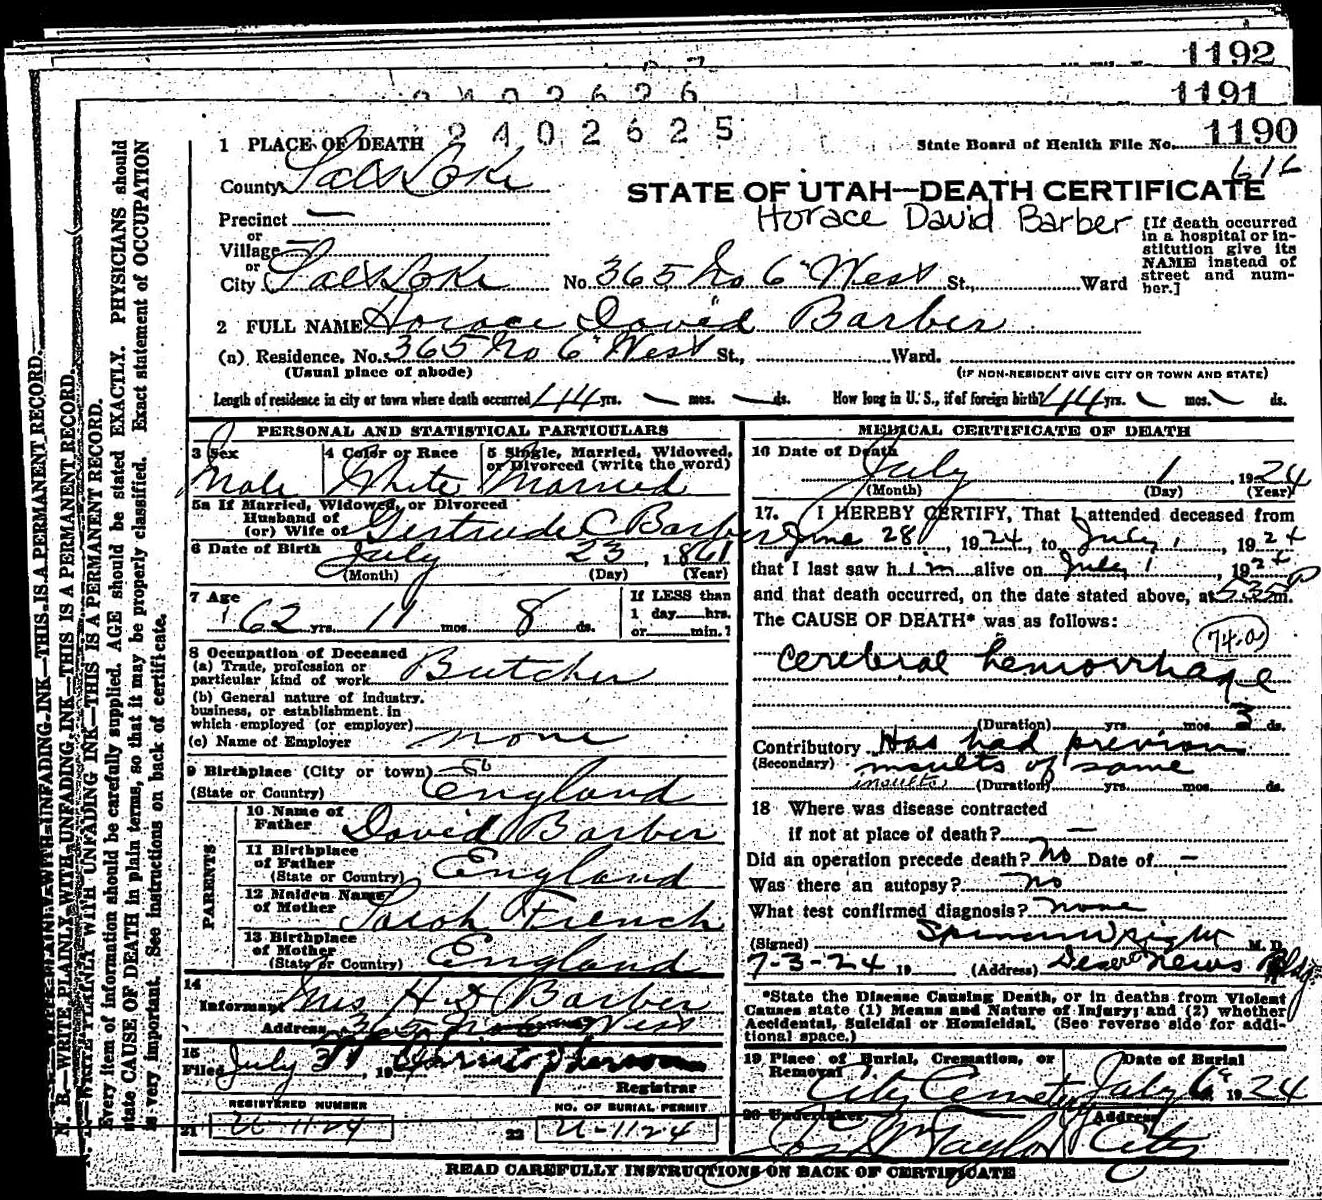 1192
1191
2402626
2402625
1190
State Board of Health File No.
616
1 PLACE OF DEATH
County Salt Lake
STATE OF UTAH—DEATH CERTIFICATE
Horace David Barber
Precinct —
or
Village —
or
City Salt Lake No. 365 No 6" West St., Ward
[If death occurred
in a hospital or in-
stitution give its
NAME instead of
street and num-
ber.]
2 FULL NAME Horace David Barber
(a) Residence, No. 365 No 6" West St., Ward.
(Usual place of abode) (IF NON-RESIDENT GIVE CITY OR TOWN AND STATE)
Length of residence in city or town where death occurred 44 yrs. — mos. — ds. How long in U. S., if of foreign birth? 44 yrs. — mos. — ds.
PERSONAL AND STATISTICAL PARTICULARS
3 Sex
Male
4 Color or Race
White
5 Single, Married, Widowed,
or Divorced (write the word)
Married
5a If Married, Widowed, or Divorced
Husband of
(or) Wife of Gertrude C Barber
6 Date of Birth July 23, 1861
(Month) (Day) (Year)
7 Age
62 yrs. 11 mos. 8 ds.
If LESS than
1 day hrs.
or min.?
8 Occupation of Deceased
(a) Trade, profession or
particular kind of work Butcher
(b) General nature of industry,
business, or establishment in
which employed (or employer)
(c) Name of Employer none
9 Birthplace (City or town)
(State or Country) England
PARENTS
10 Name of
Father David Barber
11 Birthplace
of Father
(State or Country) England
12 Maiden Name
of Mother Sarah French
13 Birthplace
of Mother
(State or Country) England
14
Informant Mrs H. D. Barber
Address 365 No 6 West
15
Filed July 3, 19
Registrar
REGISTERED NUMBER
21 U-1124
NO. OF BURIAL PERMIT
22 U-1124
MEDICAL CERTIFICATE OF DEATH
16 Date of Death
July 1, 1924
(Month) (Day) (Year)
17. I HEREBY CERTIFY, That I attended deceased from
June 28, 1924, to July 1, 1924
that I last saw him alive on July 1, 1924
and that death occurred, on the date stated above, at 5:35 P m.
The CAUSE OF DEATH* was as follows:
74-a
cerebral hemorrhage
(Duration) yrs mos. 3 ds.
Contributory Has had previous
(Secondary) insults of same
insults (Duration) yrs. mos. ds.
18 Where was disease contracted
if not at place of death? —
Did an operation precede death? No Date of —
Was there an autopsy? No
What test confirmed diagnosis? none
(Signed) Spencer Wright M. D.
7-3-24 19 (Address) Deseret News Bldg
*State the Disease Causing Death, or in deaths from Violent
Causes state (1) Means and Nature of Injury; and (2) whether
Accidental, Suicidal or Homicidal. (See reverse side for addi-
tional space.)
19 Place of Burial, Cremation, or
Removal City Cemetery
Date of Burial
July 6", 1924
20 Undertaker
Jos Wm Taylor
Address
City
READ CAREFULLY INSTRUCTIONS ON BACK OF CERTIFICATE
N. B.—WRITE PLAINLY, WITH UNFADING INK—THIS IS A PERMANENT RECORD.
Every item of information should be carefully supplied. AGE should be stated EXACTLY. PHYSICIANS should
state CAUSE OF DEATH in plain terms, so that it may be properly classified. Exact statement of OCCUPATION
is very important. See instructions on back of certificate.